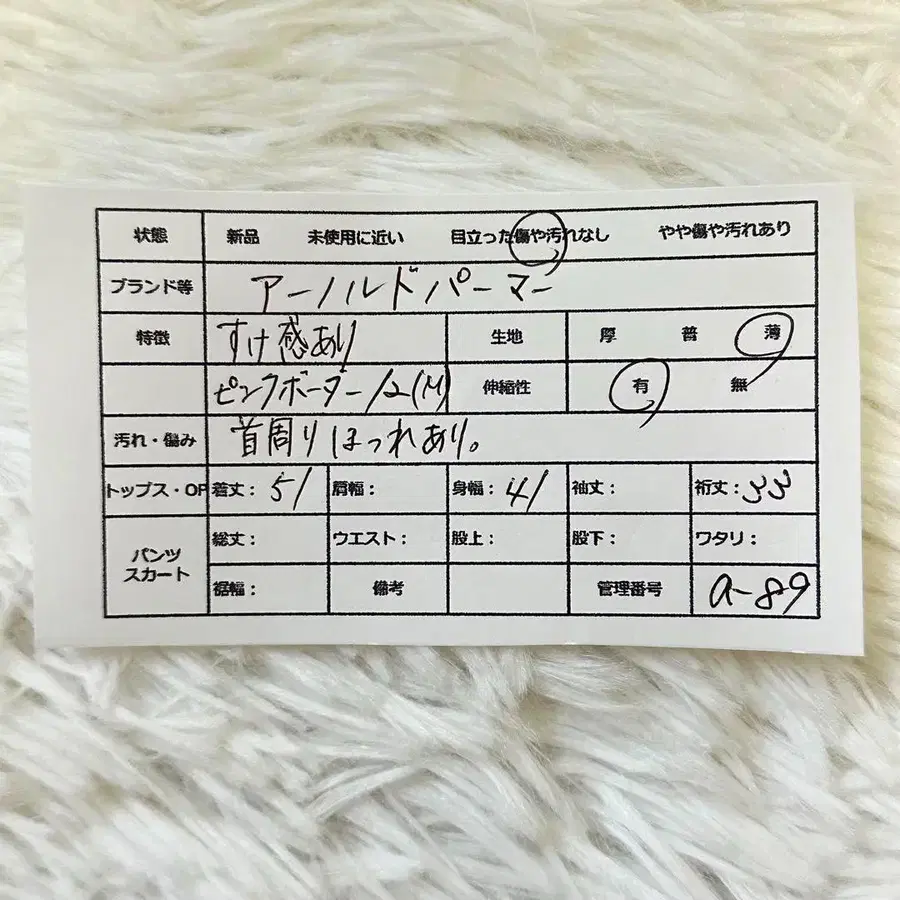 状態 新品 未使用に近い 目立った傷や汚れなし やや傷や汚れあり
ブランド等 アーノルドパーマー
特徴 すけ感あり 生地 厚 普 薄
ピンクボーダー/2(M) 伸縮性 有 無
汚れ・傷み 首周りほつれあり。
トップス・OP 着丈：51 肩幅： 身幅：41 袖丈： 裄丈：33
パンツ スカート 総丈： ウエスト： 股上： 股下： ワタリ：
裾幅： 備考 管理番号 a-89